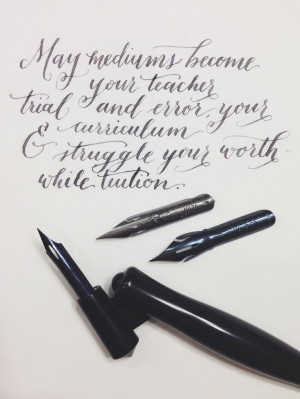 May mediums become
your teacher
trial and error, your
curriculum
& struggle your worth
while tuition.